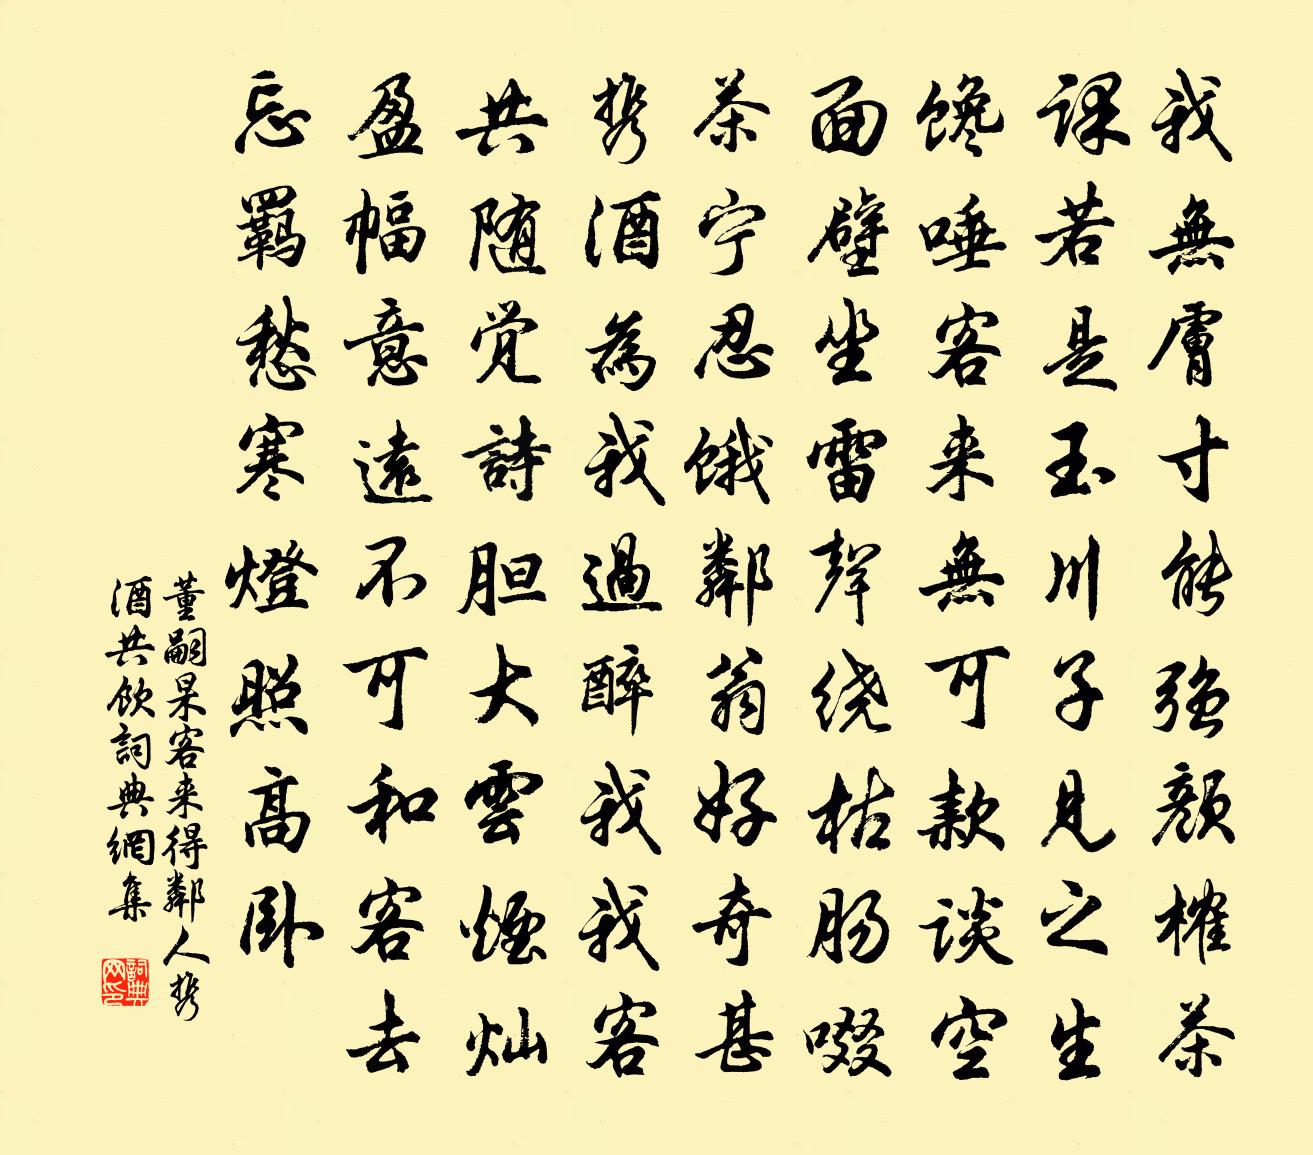 我無膚寸能強顏榷茶
課若是玉川子見之生
馋唾客来無可款談空
面壁坐雷聲绕枯肠啜
茶宁忍饿鄰翁好奇甚
携酒為我過醉我我客
共随觉詩胆大雲煙灿
盈幅意遠不可和客去
忘羁愁寒燈照高卧
董嗣杲客来得鄰人携
酒共飲詞典網集
詞典
网印